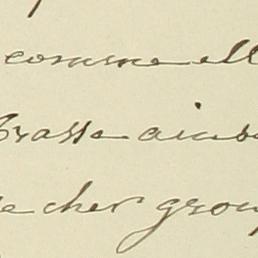 comme ell
Grasse ainsi
le cher group